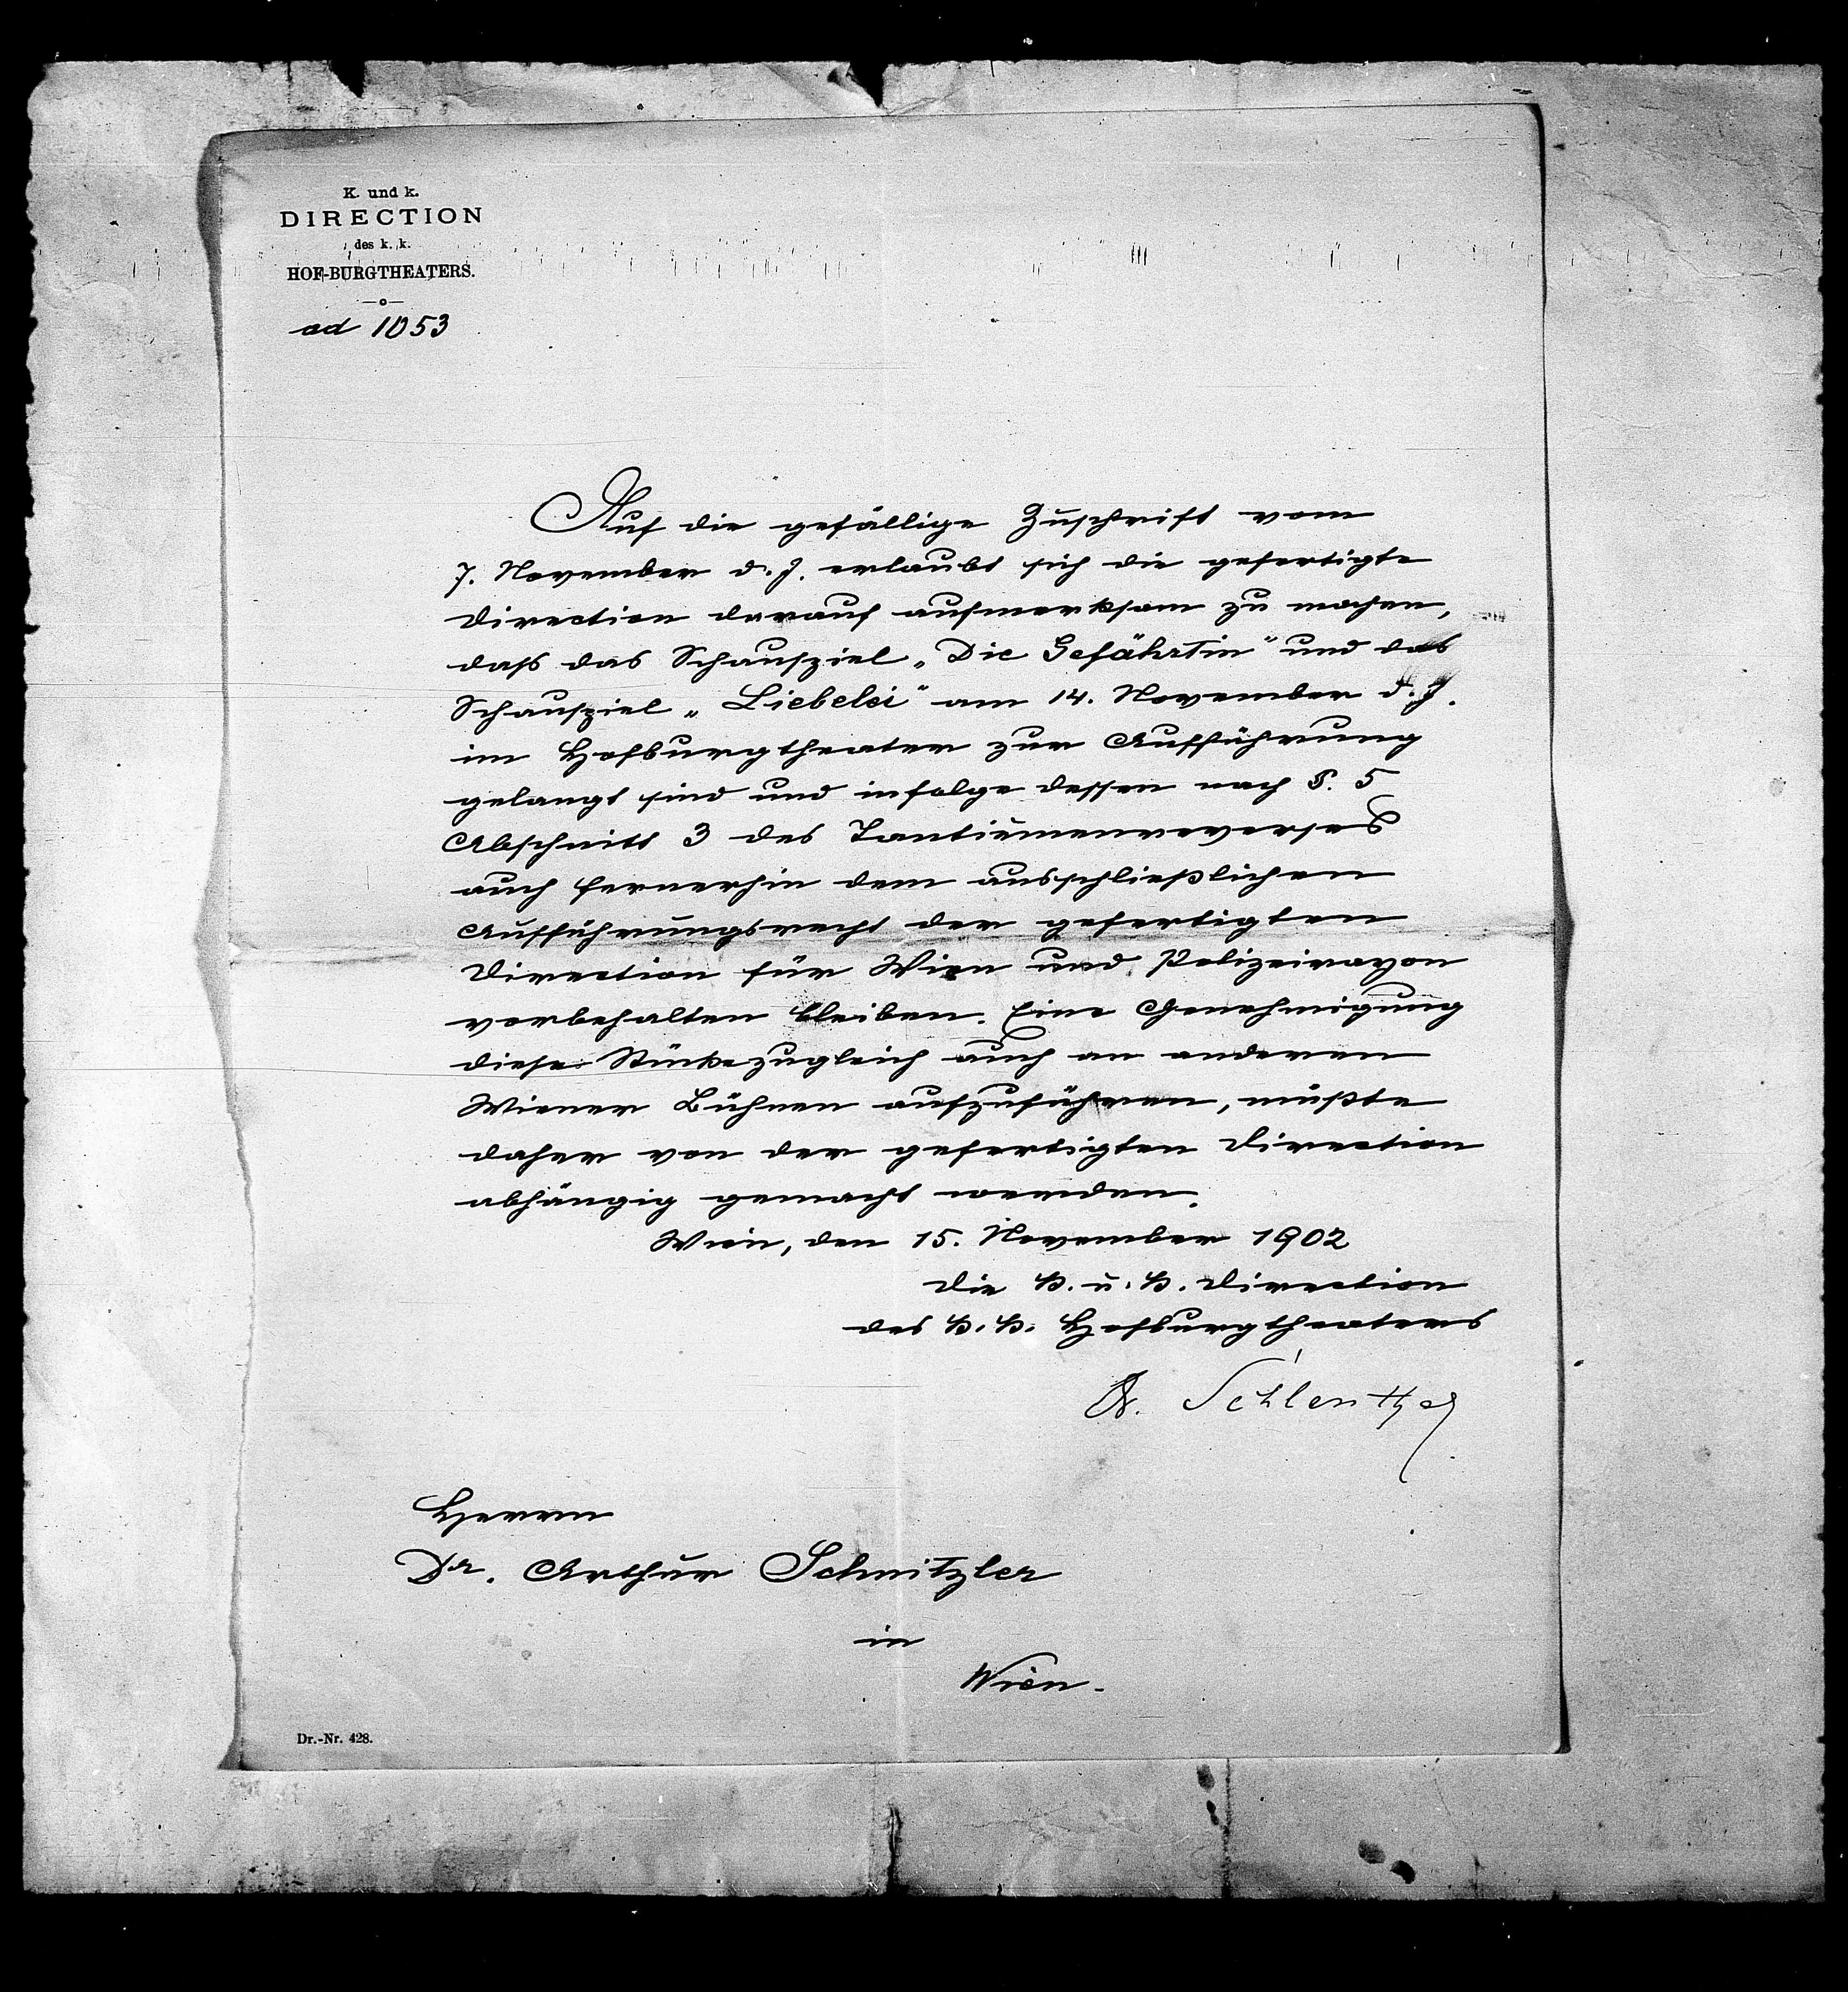 K. und k.
DIRECTION
des k. k.
HOF-BURGTHEATERS.
ad 1053
Auf die gefällige Zuschrift vom
7. November d. J. erlaubt sich die gefertigte
Direction darauf aufmerksam zu machen,
dass das Schauspiel „Die Gefährtin" und das
Schauspiel „Liebelei" am 14. November d. J.
im Hofburgtheater zur Aufführung
gelangt sind und infolge dessen nach §. 5
Abschnitt 3 des Tantièmenreverses
auch fernerhin dem ausschließlichen
Aufführungsrecht der gefertigten
Direction für Wien und Polizeirayon
vorbehalten bleiben. Eine Genehmigung
diese Stücke zugleich auch an anderen
Wiener Bühnen aufzuführen, müßte
daher von der gefertigten Direction
abhängig gemacht werden.
Wien, den 15. November 1902
Die k. u. k. Direction
des k. k. Hofburgtheaters
Schlenther
Herrn
Dr. Arthur Schnitzler
in
Wien.
Dr.-Nr. 428.